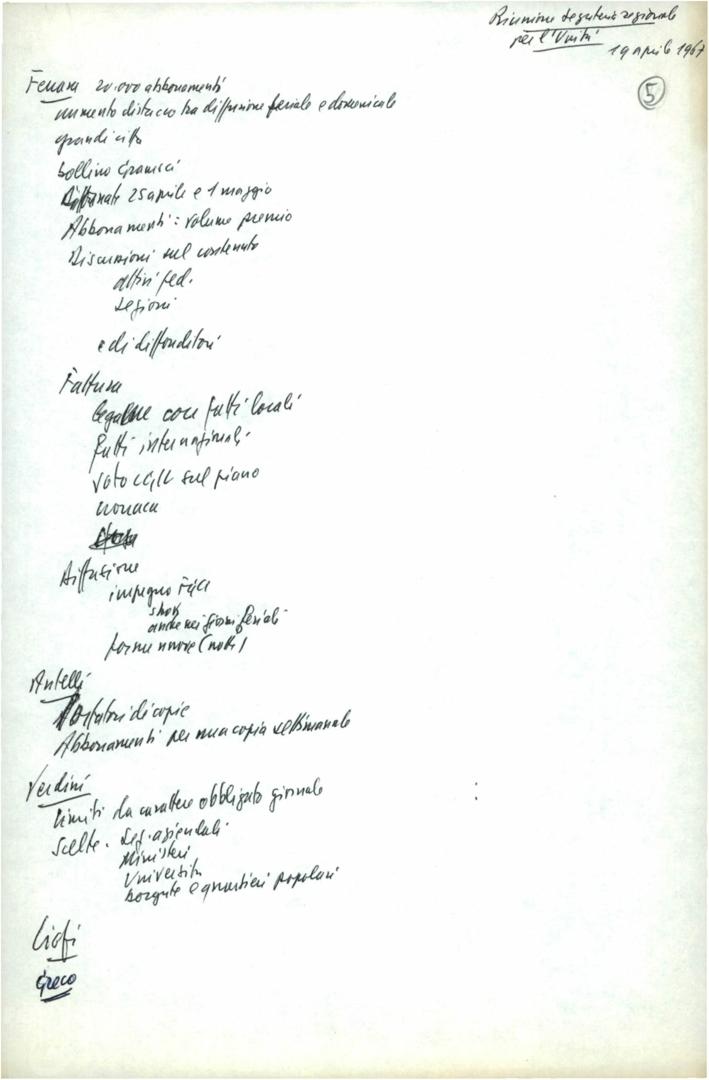 Riunione segreteria regionale
per l'Unità
19 aprile 1967
5
Ferrara 20.000 abbonamenti
aumento distacco tra diffusione feriale e domenicale
grandi città
bollino Gramsci
25 aprile e 1 maggio
Abbonamenti: volume premio
Discussioni sul contenuto
attivi fed.
sezioni
e di diffonditori
Fattura
con fatti locali
fatti internazionali
voto sul piano
cronaca
Diffusione
impegno FGCI
anche nei giorni feriali
forme nuove (notte)
Antelli
di copie
Abbonamenti per una copia settimanale
Verdini
limiti da carattere obbligato giornale
Scelte. Sez. aziendali
Ministeri
Università
borgate e quartieri popolari
Ciofi
Greco